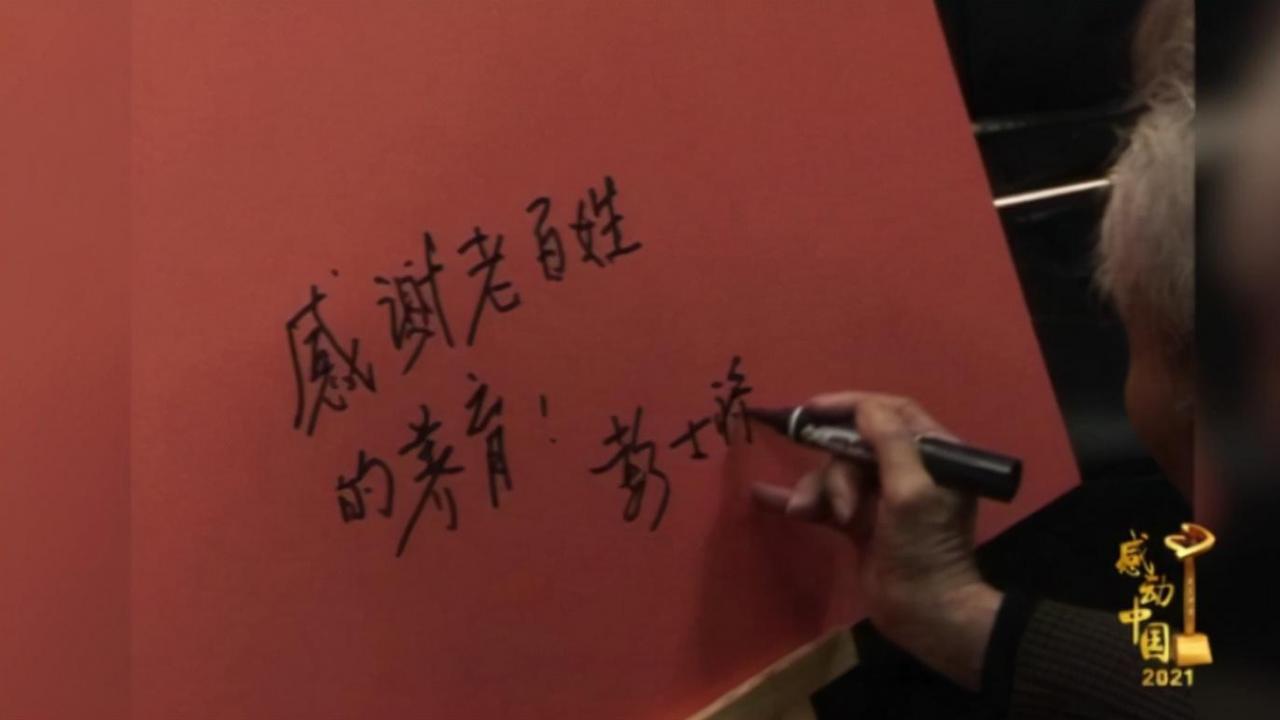 感谢老百姓
的养育！彭士禄
感动中国
2021